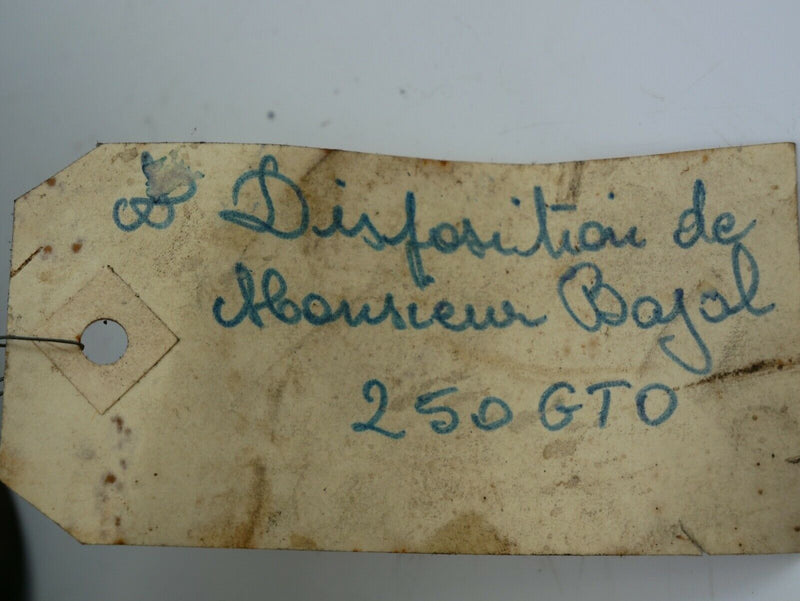 à Disposition de
Monsieur Bajol
250 GTO